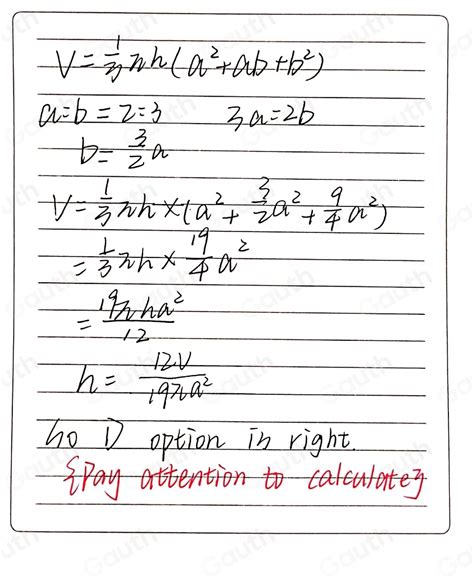 V = 1/3 πh(a² + ab + b²)
a:b = 2:3 3a = 2b
b = 3/2 a
V = 1/3 πh × (a² + 3/2 a² + 9/4 a²)
= 1/3 πh × 19/4 a²
= 19πha²/12
h = 12V/19πa²
So D option is right.
{Pay attention to calculate}
Gauth